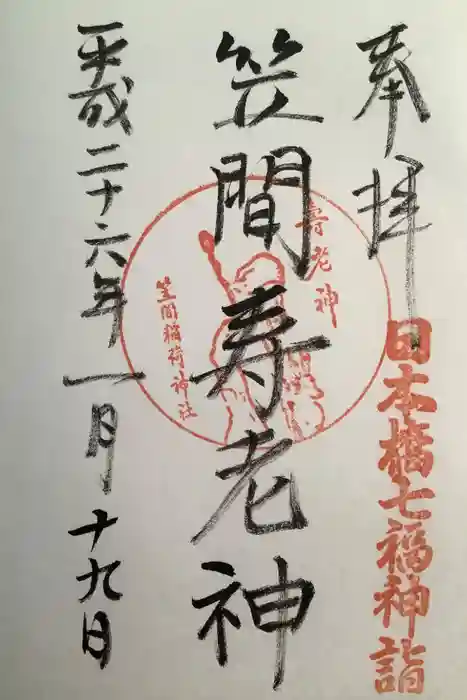 奉拝
日本橋七福神詣
笠間寿老神
壽老神
笠間稲荷神社
平成二十六年一月十九日